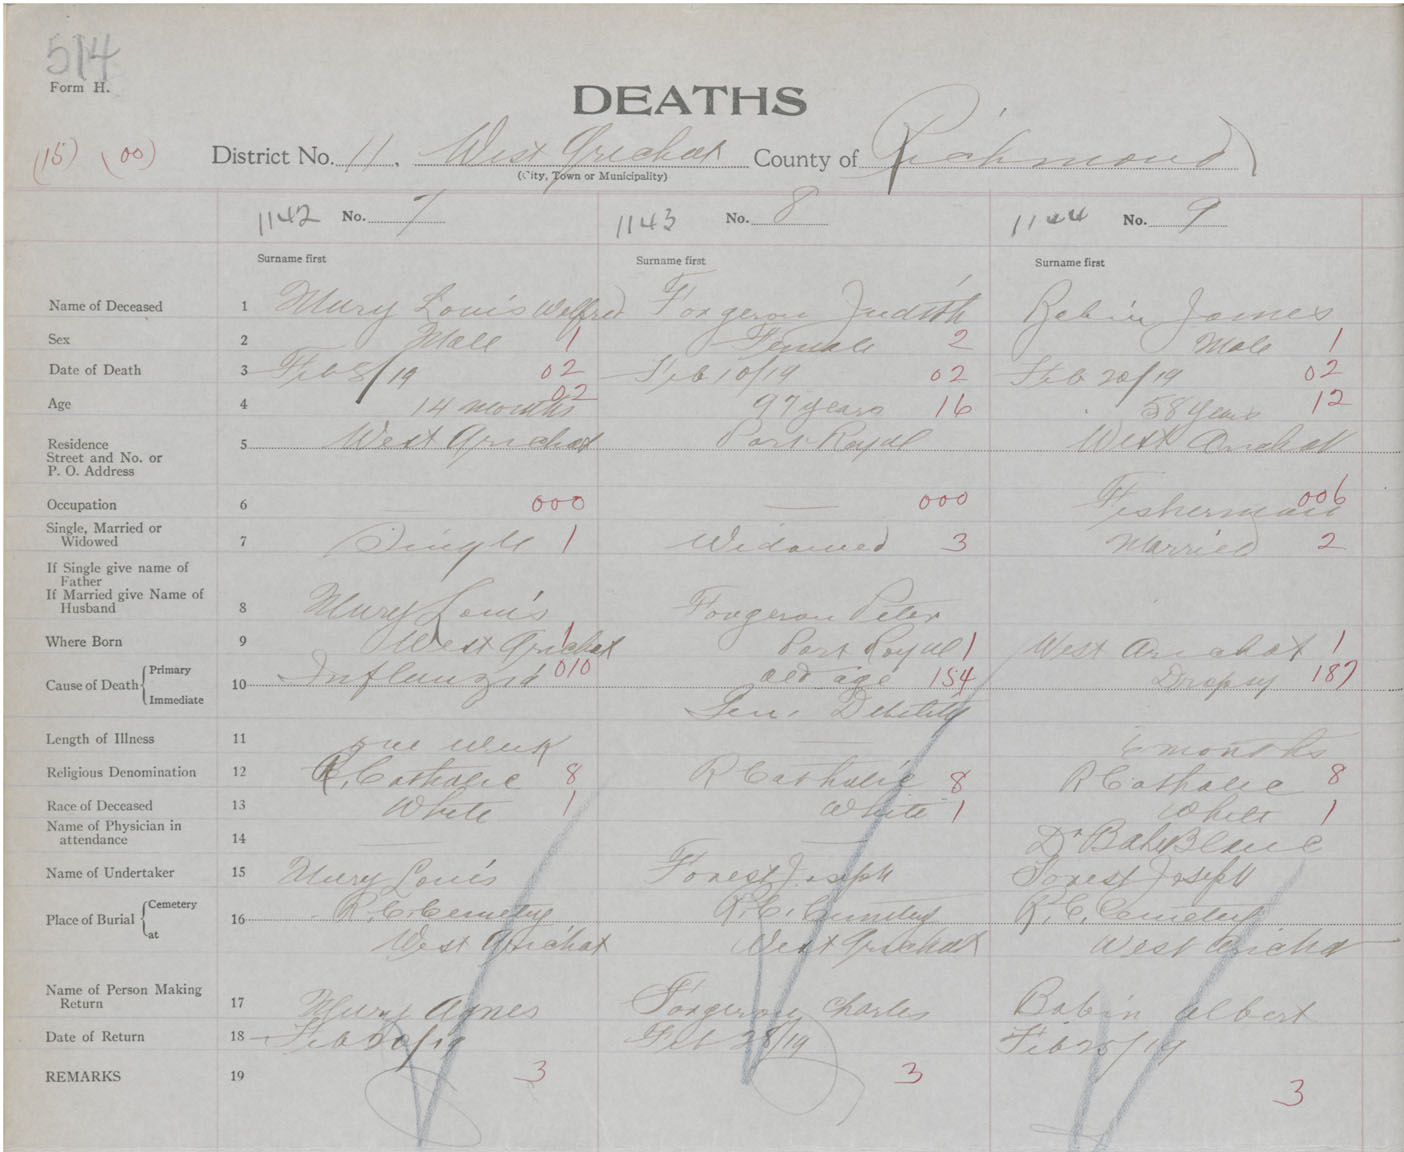 514
Form H.
DEATHS
(15) (00) District No. 11. West Arichat County of Richmond
(City, Town or Municipality)
1142 No. 7 1143 No. 8 1144 No. 9
Surname first Surname first Surname first
Name of Deceased 1 Mury Louis Wilfred Forgeron Judith Babin James
Sex 2 Male 1 Female 2 Male 1
Date of Death 3 Feb 8/19 02 Feb 10/19 02 Feb 20/19 02
Age 4 14 months 02 97 years 16 58 years 12
Residence
Street and No. or
P. O. Address 5 West Arichat Port Royal West Arichat
Occupation 6 000 000 Fisherman 006
Single, Married or
Widowed 7 Single 1 Widowed 3 Married 2
If Single give name of
Father
If Married give Name of
Husband 8 Mury Louis Forgeron Peter
Where Born 9 West Arichat 1 Port Royal 1 West Arichat 1
Cause of Death Primary 10 Influenzia 010 old age 154 Dropsy 187
Immediate Gen. Debility
Length of Illness 11 one week 6 months
Religious Denomination 12 R. Catholic 8 R Catholic 8 R Catholic 8
Race of Deceased 13 White 1 White 1 White 1
Name of Physician in
attendance 14 Dr
Name of Undertaker 15 Mury Louis Forest Joseph Forest Joseph
Place of Burial Cemetery 16 R. C. Cemetery R. C. Cemetery R. C. Cemetery
at West Arichat West Arichat West Arichat
Name of Person Making
Return 17 Mury Agnes Forgeron Charles Babin Albert
Date of Return 18 Feb 20/19 Feb 28/19 Feb 25/19
REMARKS 19 3 3 3